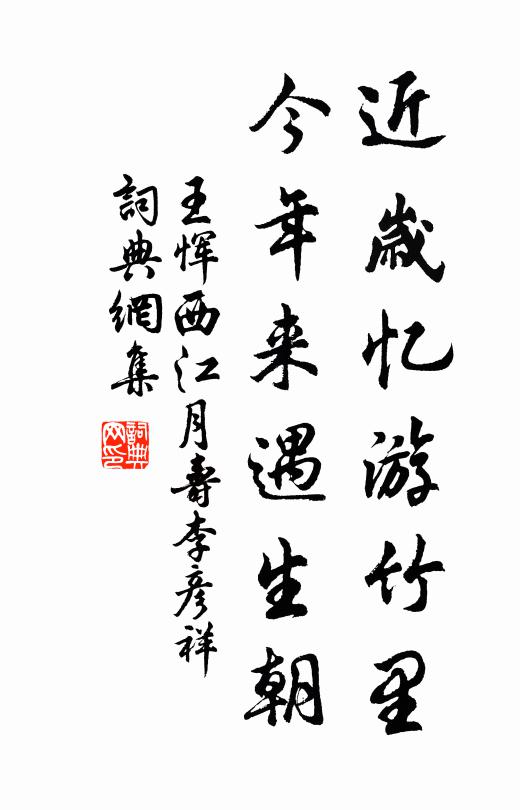 近岁忆游竹里
今年来遇生朝
王恽西江月寿李彦祥
詞典網集
詞典网印